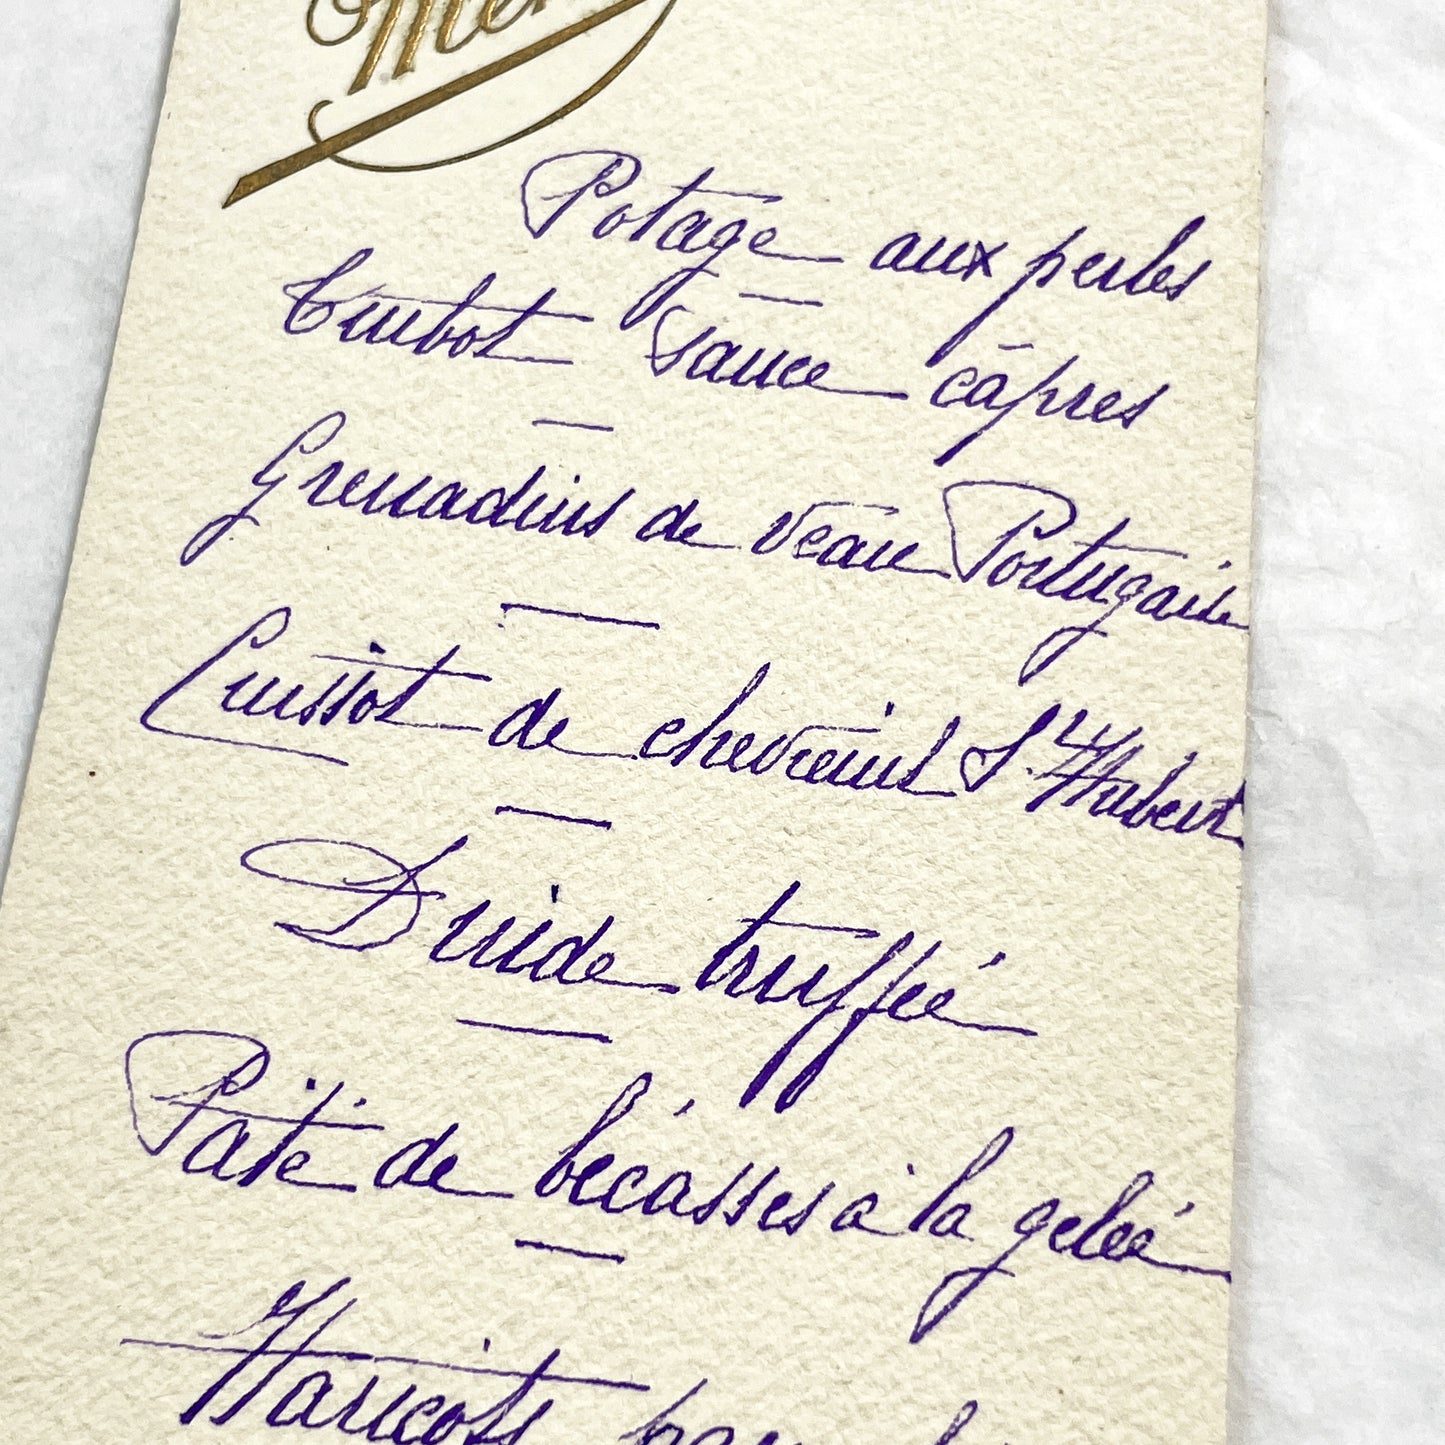 Potage aux perles
Turbot sauce câpres
Grenadins de veau Portugaise
Cuissot de chevreuil St Hubert
Dinde truffée
Pâté de bécasses à la gelée
Haricots